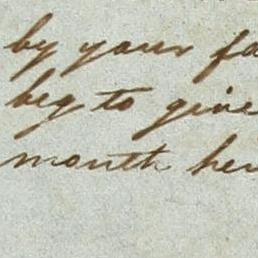 by your fa
beg to give
month her